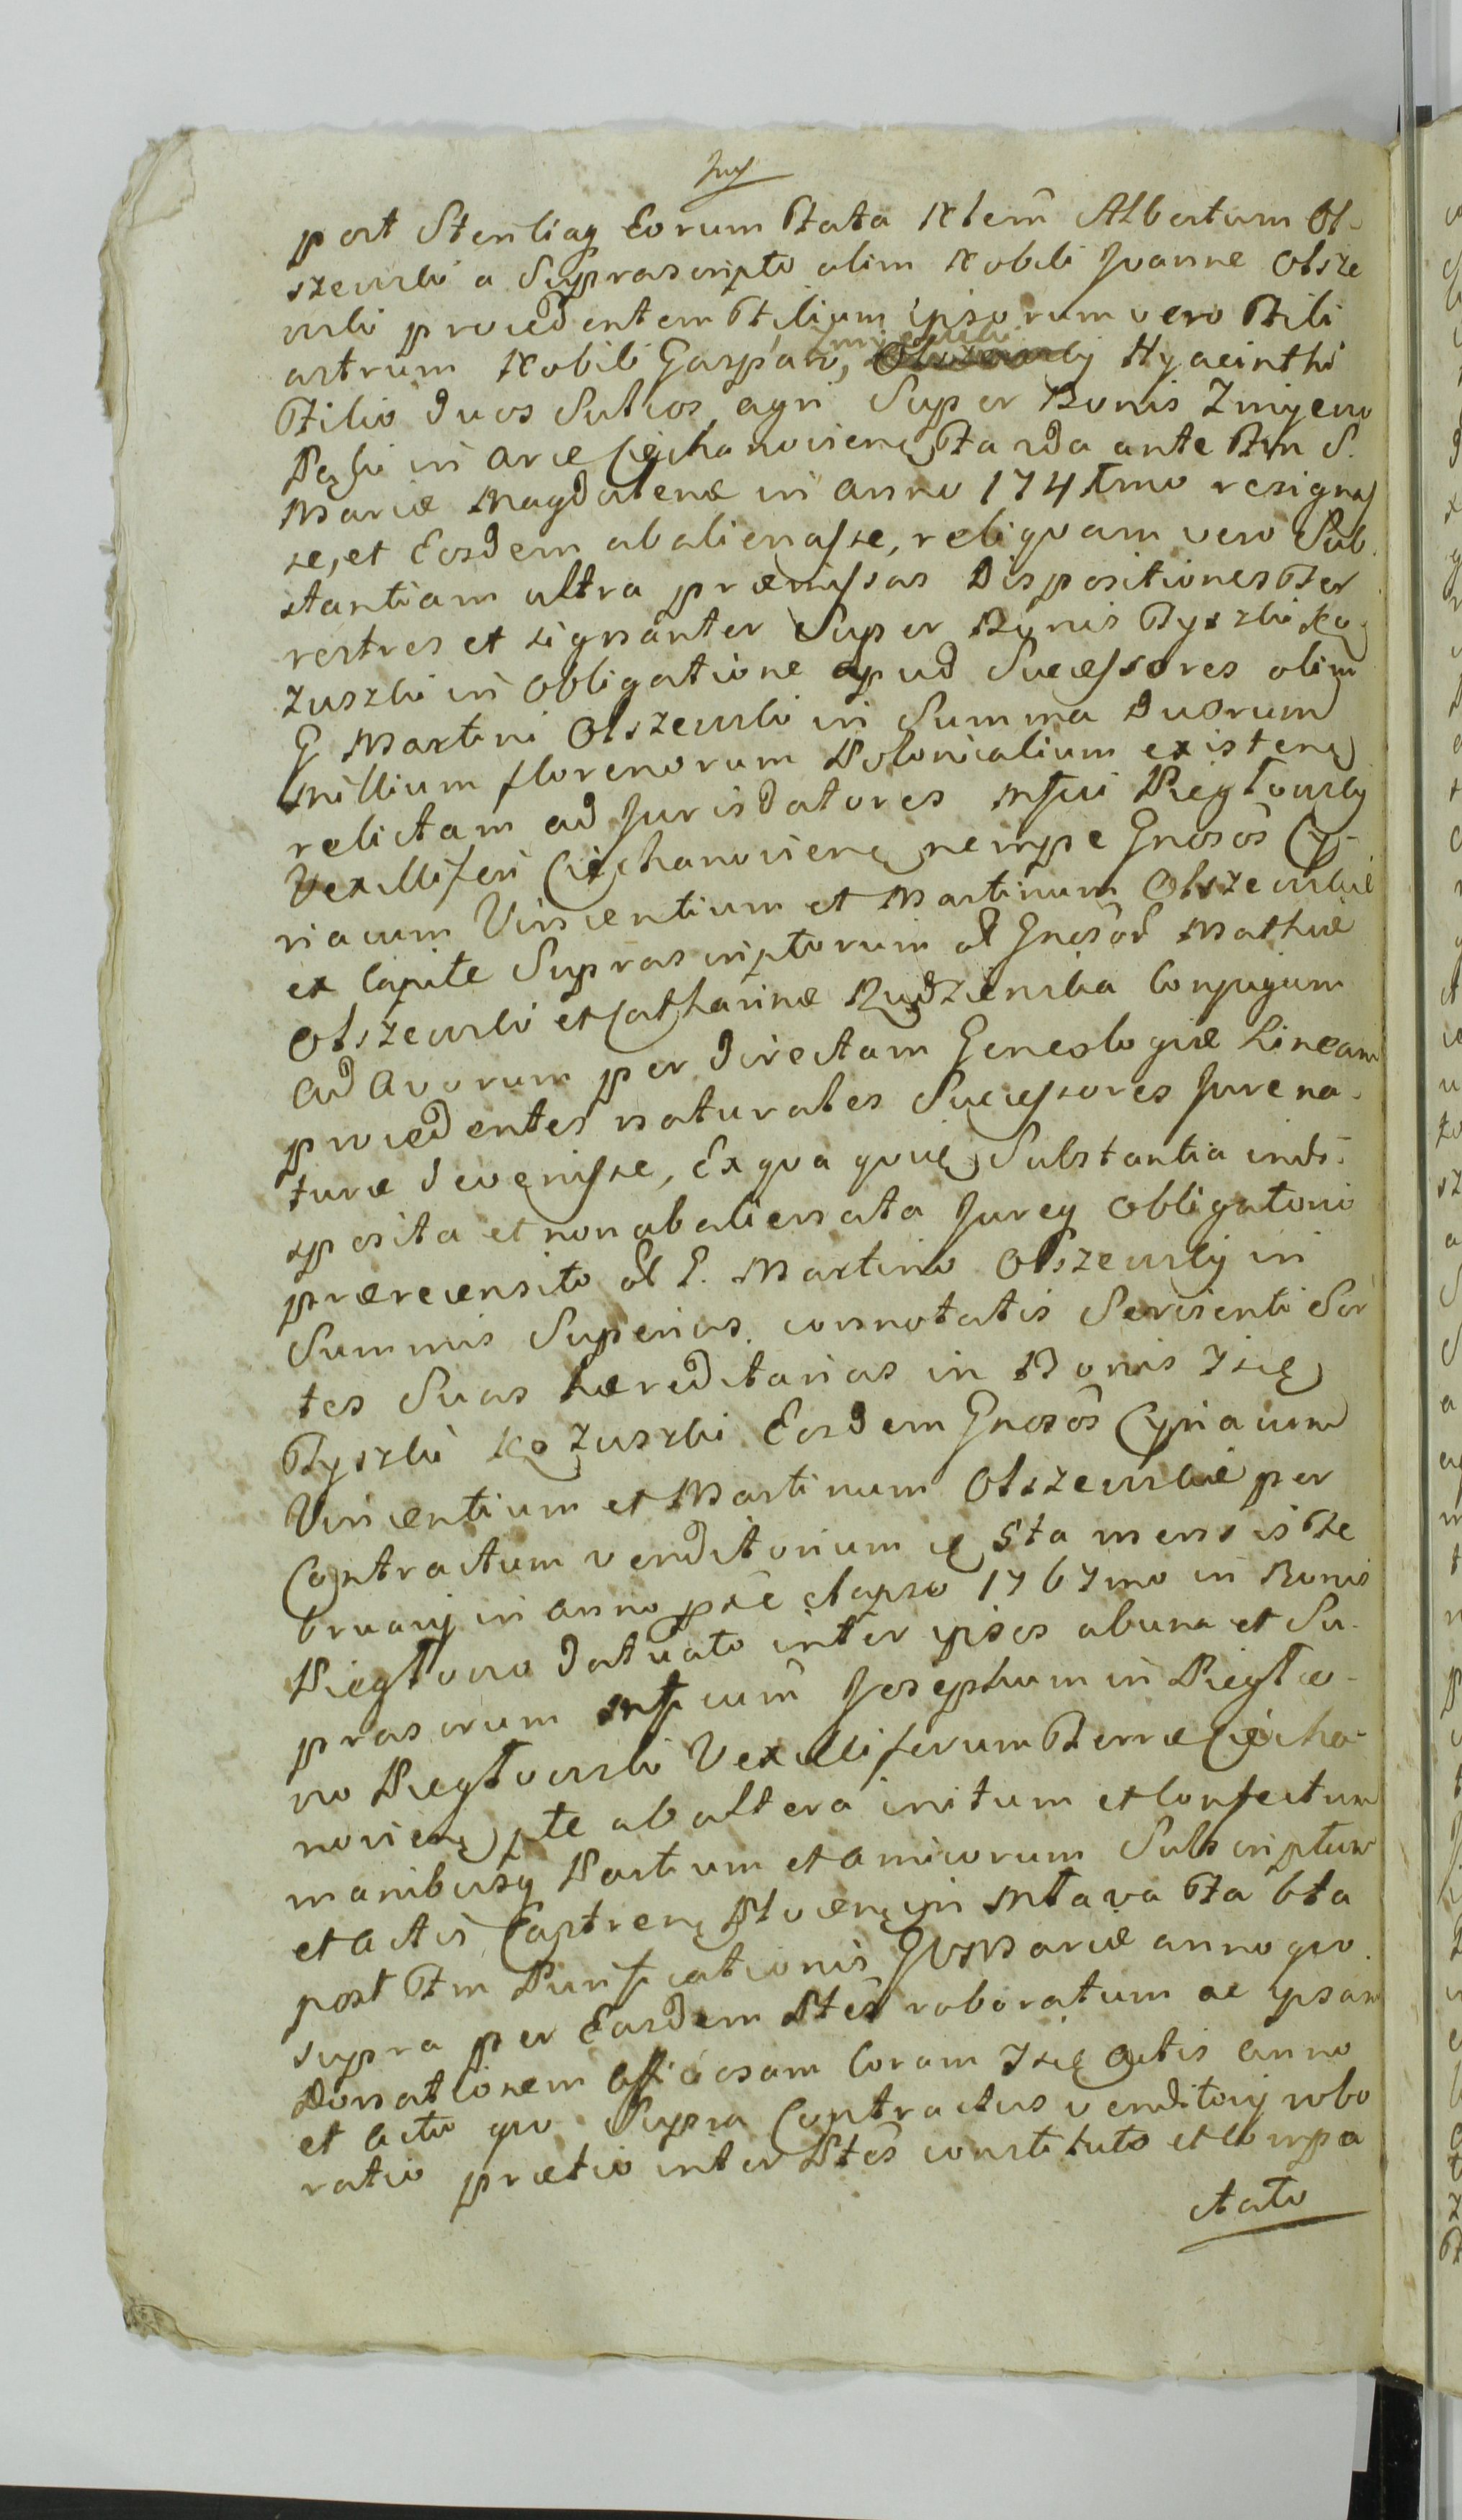 post Steriliaq Eorum Fata Nlem Albertum Ol-
szewski a Suprascripto olim Nobili Joanne Olsze
wski procedentem Filium ipsorum vero Fili
astrum Nobili Gaspar, Olszewsky Hyacinthi
Filio duos Sulcos agri Super Bonis Zmijewo
in arce Ciechanoviens Fa 3tia ante Fm S.
Mariæ Magdalenæ in anno 174 resignas
se, et Eosdem abalienasse, reliquam vero Sub
stantiam ultra præmissas Dispositiones Ter
restres et signanter Super Bonis Tyszki Ko
zuszki in obligatione apud Successores olim
G Martini Olszewski in Summa Duorum
millium florenorum Polonicalium existens
relictam ad Jurisdatores Mfici Pieglowsky
Vexilliferi Ciechanoviens nempe Gnosos Cy-
riacum Vincentium et Martinum Olszewskie
ex Capite Suprascriptorum ol Gnosor Mathiæ
Olszewski et Catharinæ Rudzienska Conjugum
ad avorum per directam Genealogiæ Lineam
procedentes naturales Successores Jure na-
turæ devenisse, Ex qua quis Substantia indi-
sposita et non abalienata Jureq obligatorio
prærecensito ol G. Martino Olszewsky in
Summis Superius connotatis Servienti Sor
tes Suas hæreditarias in Bonis
Tyszki Kozuszki Eosdem Gnosos Cyriacum
Vincentium et Martinum Olszewskie per
Contractum venditorium 5ta mensis Fe
bruarij in anno elapso 1767mo in Bonis
Pieglowo datuato inter ipsos ab una et Su-
prasorum Mficum Josephum in Pieglo-
wo Pieglowski Vexilliferum Terræ Ciecha-
noviens pte ab altera initum et Confectum
manibusq Partium et amicorum Subscriptum
et actis Castrens in Mlava Fa 6ta
post Fm Purificationis GVMariæ anno quo
supra per Easdem Ptes roboratum ac ipsam
Donationem officiosam Coram actis anno
et actu quo Supra Contractus venditorij robo
ratio prætio inter Ptes constituto et Compa
ctato